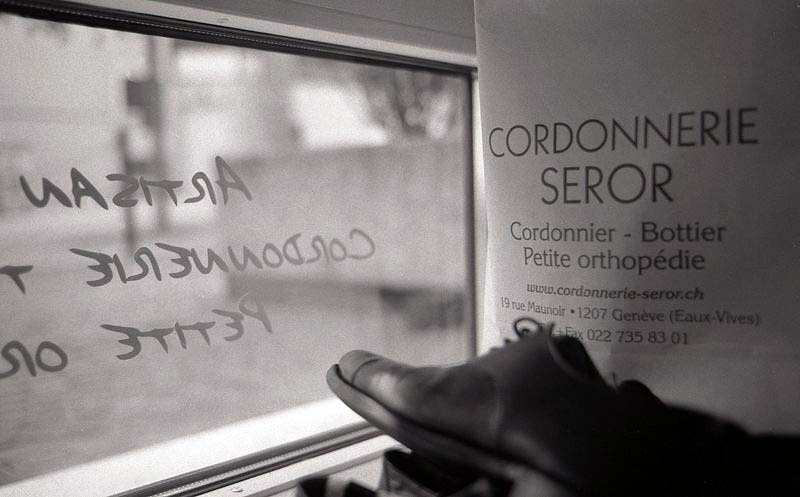 ARTISAN
CORDONNERIE T
PETITE OR
CORDONNERIE
SEROR
Cordonnier - Bottier
Petite orthopédie
www.cordonnerie-seror.ch
19 rue Maunoir • 1207 Genève (Eaux-Vives)
+Fax 022 735 83 01